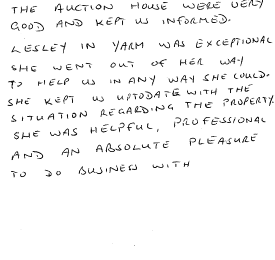 THE AUCTION HOUSE WERE VERY
GOOD AND KEPT US INFORMED.
LESLEY IN YARM WAS EXCEPTIONAL
SHE WENT OUT OF HER WAY
TO HELP US IN ANY WAY SHE COULD.
SHE KEPT US UPTODATE WITH THE
SITUATION REGARDING THE PROPERTY.
SHE WAS HELPFUL, PROFESSIONAL
AND AN ABSOLUTE PLEASURE
TO DO BUSINESS WITH